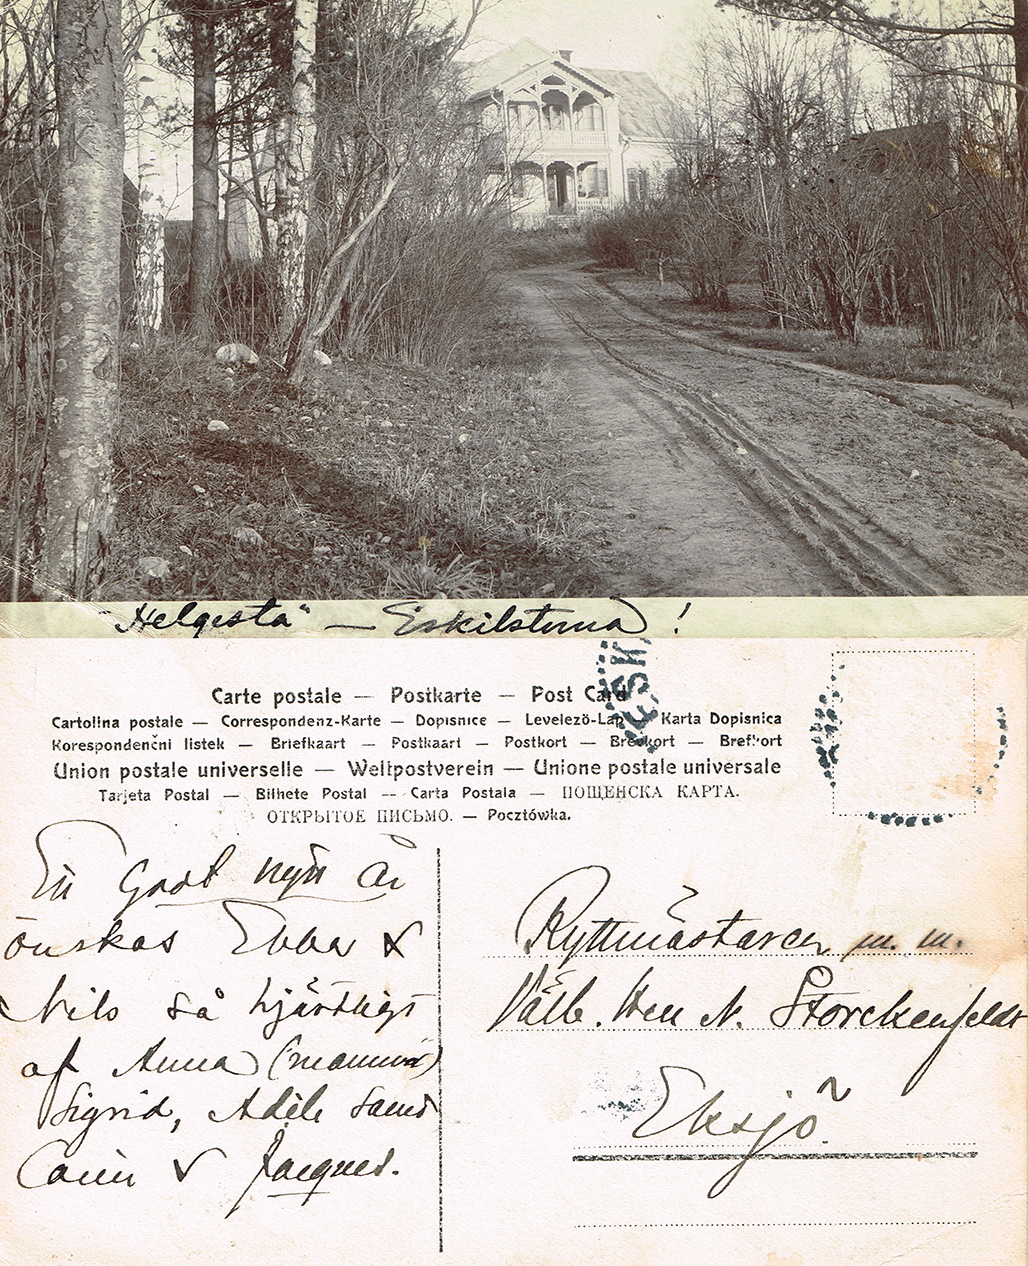 "Helgesta" — Eskilstuna!
Carte postale — Postkarte — Post Card
Cartolina postale — Correspondenz-Karte — Dopisnice — Levelező-Lap — Karta Dopisnica
Korespondenční listek — Briefkaart — Postkaart — Postkort — Brevkort — Brefkort
Union postale universelle — Weltpostverein — Unione postale universale
Tarjeta Postal — Bilhete Postal — Carta Postala — ПОЩЕНСКА КАРТА.
ОТКРЫТОЕ ПИСЬМО. — Pocztówka.
Ett Godt nytt år
önskas Ebba &
Nils så hjärtligt
af Anna (mamma)
Sigrid, Adèle samt
Carin & Jacques.
Ryttmästaren m. m.
Välb. Herr N. Storckenfeldt
Eksjö.